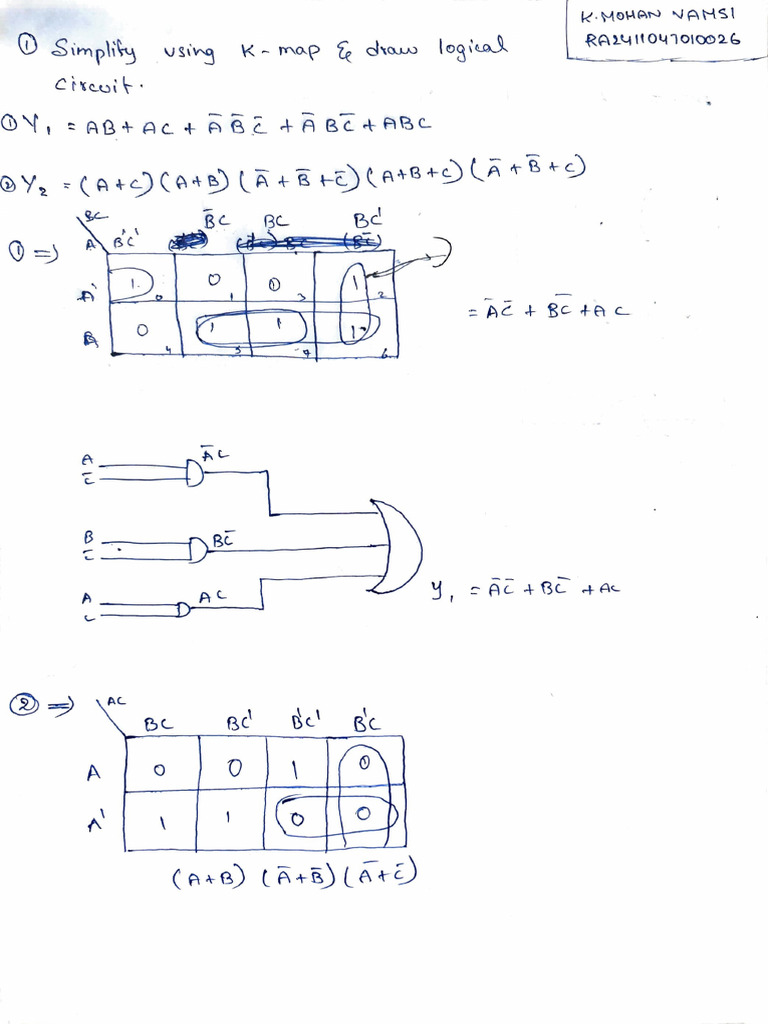 K.MOHAN VAMSI
RA2411047010026
① Simplify using K-map & draw logical
circuit.
① Y₁ = AB + AC + A̅ B̅ C̅ + A̅ B C̅ + ABC
② Y₂ = (A+C) (A+B) (A̅ + B̅ + C̅) (A+B+C) (A̅ + B̅ + C)
B̅C BC BC'
BC
① ⇒ A B'C'
A' 1 0 0 0 1 0 3 1 2
B 0 4 1 5 1 7 1 6
= A̅C̅ + BC̅ + AC
A
C̅
A̅C
B
C̅
BC̅
A
C
AC
Y₁ = A̅C̅ + BC̅ + AC
② ⇒ AC
BC BC' B'C' B'C
A 0 0 1 0
A' 1 1 0 0
(A+B) (A̅+B̅) (A̅+C̅)